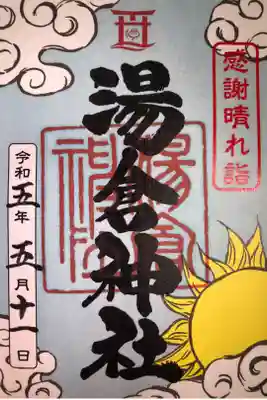 感謝晴れ詣
湯倉神社
令和五年五月十一日